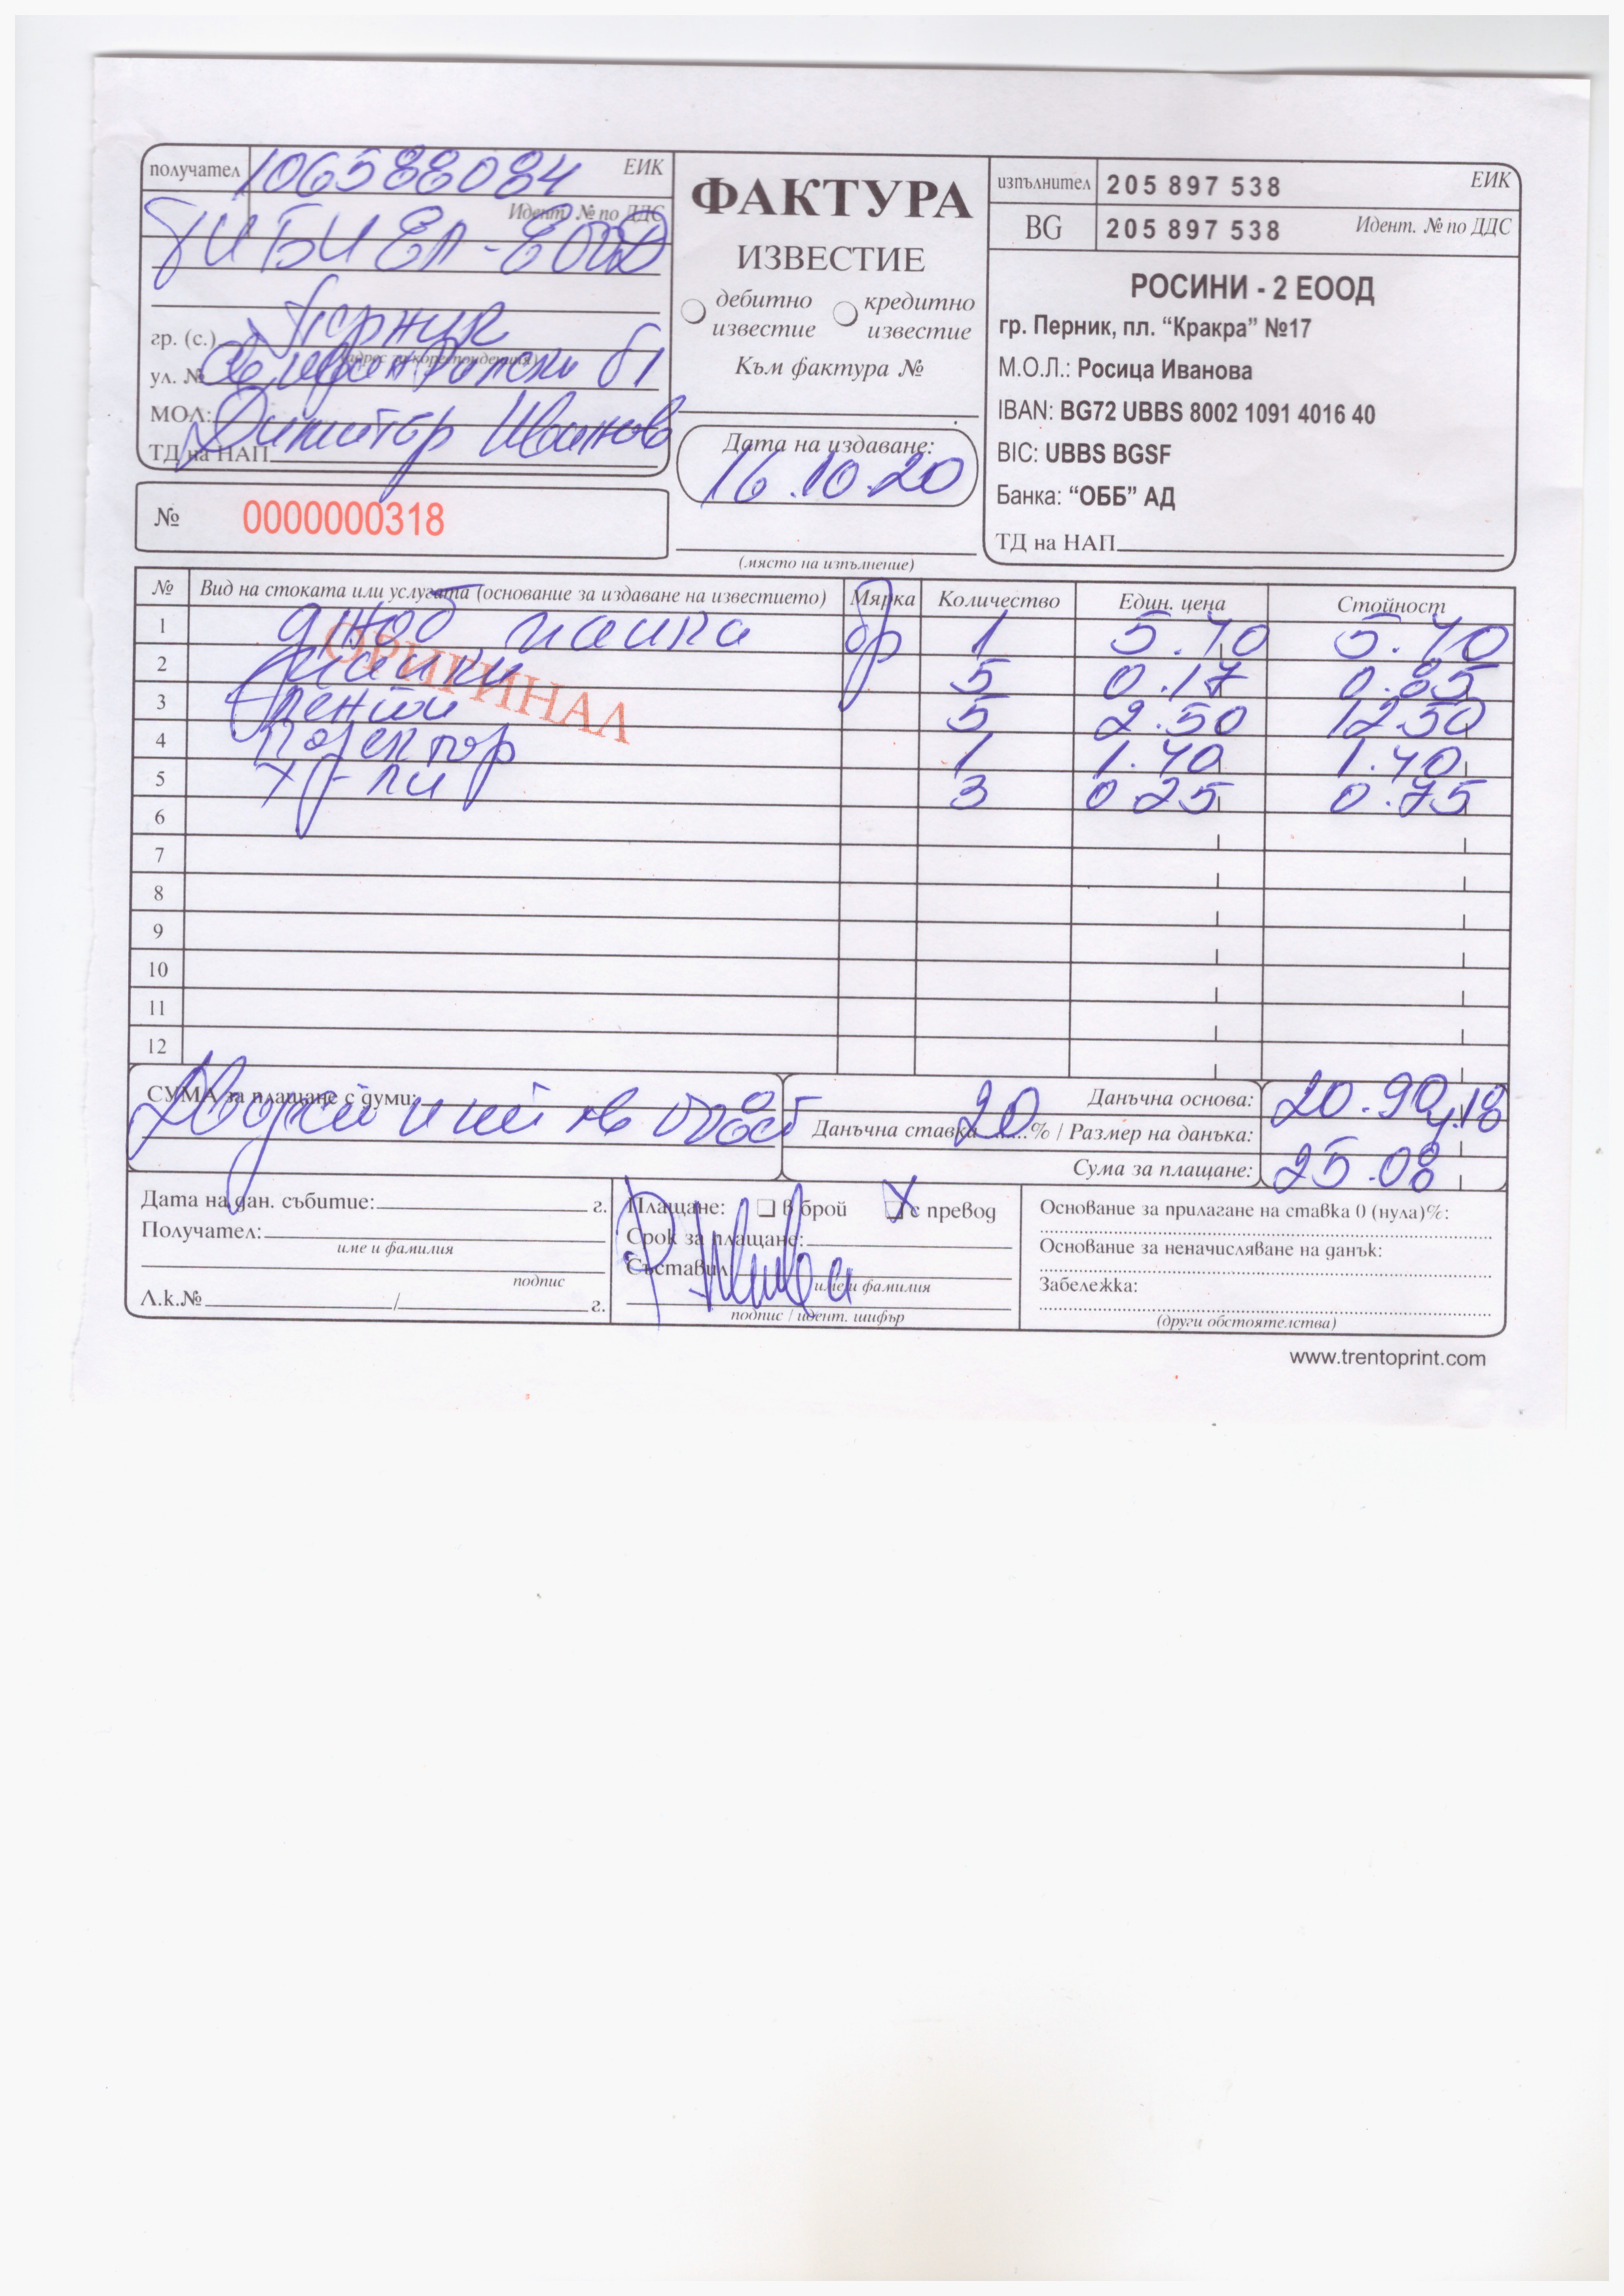 получател 106588084 ЕИК
Идент. № по ДДС
ДИБИЕЛ-ЕООД
гр. (с.) Перник
(адрес за кореспонденция)
ул. № 61
МОЛ: Димитър Иванов
ТД на НАП
№ 0000000318
ФАКТУРА
ИЗВЕСТИЕ
дебитно известие
кредитно известие
Към фактура №
Дата на издаване:
16.10.20
(място на изпълнение)
изпълнител 205 897 538 ЕИК
BG 205 897 538 Идент. № по ДДС
РОСИНИ - 2 ЕООД
гр. Перник, пл. “Кракра” №17
М.О.Л.: Росица Иванова
IBAN: BG72 UBBS 8002 1091 4016 40
BIC: UBBS BGSF
Банка: “ОББ” АД
ТД на НАП
№ Вид на стоката или услугата (основание за издаване на известието) Мярка Количество Един. цена Стойност
1 джоб папка бр 1 5.40 5.40
2 папки 5 0.17 0.85
ОРИГИНАЛ
3 ленти 5 2.50 12.50
4 коректор 1 1.40 1.40
5 х-ли 3 0.25 0.75
6
7
8
9
10
11
12
СУМА за плащане с думи:
Данъчна основа: 20.90
Данъчна ставка 20 % / Размер на данъка: 4.18
Сума за плащане: 25.08
Дата на дан. събитие: г.
Получател:
име и фамилия
подпис
Л.к.№ / г.
Плащане: в брой X с превод
Срок за плащане:
Съставил:
име и фамилия
подпис / идент. шифър
Основание за прилагане на ставка 0 (нула)%:
Основание за неначисляване на данък:
Забележка:
(други обстоятелства)
www.trentoprint.com